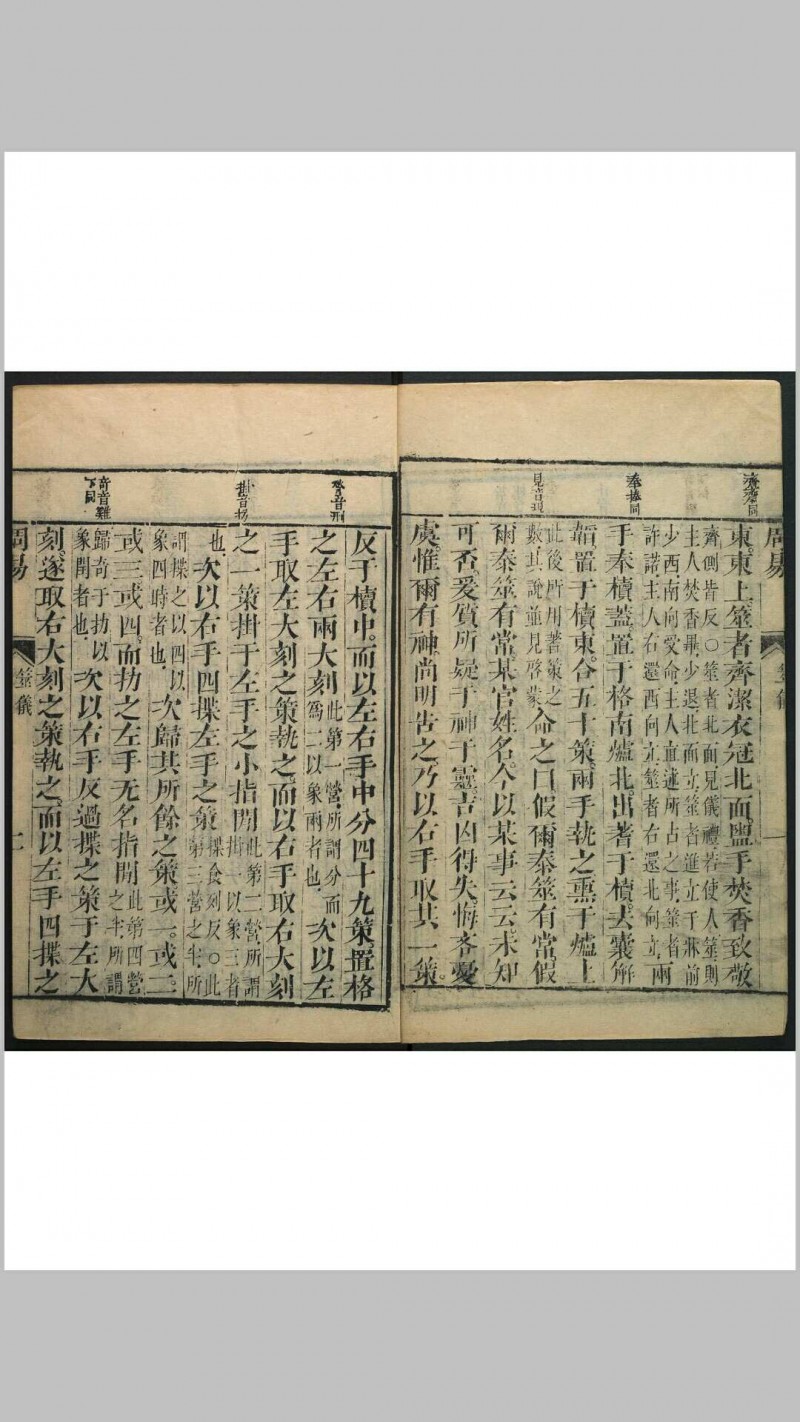 齊齋同
奉捧同
見音現
周易
筮儀
一
東東上筮者齊潔衣冠北面盥手焚香致敬
齊側皆反○筮者北面見儀禮若使人筮則
主人焚香畢少退北面立筮者進立于牀前
少西南向受命主人直述所占之事筮者
許諾主人右還西向立筮者右還北向立
兩
手奉櫝蓋置于格南爐北出蓍于櫝去囊解
韜置于櫝東合五十策兩手執之熏于爐上
此後所用蓍策之
數其說並見啓蒙
命之曰假爾泰筮有常假
爾泰筮有常某官姓名今以某事云云未知
可否爰質所疑于神于靈吉凶得失悔吝憂
虞惟爾有神尚明告之乃以右手取其一策
掛音
奇音
下同
反于櫝中而以左右手中分四十九策置格
之左右兩大刻
此第一營所謂分而
爲二以象兩者也
次以左
手取左大刻之策執之而以右手取右大刻
之一策掛于左手之小指間
此第二營所謂
掛一以象三者
也
次以右手四揲左手之策
揲食列反○此
第三營之半所
謂揲之以四以
象四時者也
次歸其所餘之策或一或二
或三或四而扐之左手无名指間
此第四營
之半所謂
歸奇于扐以
象閏者也
次以右手反過揲之策于左大
刻遂取右大刻之策執之而以左手四揲之
周易
筮儀
二